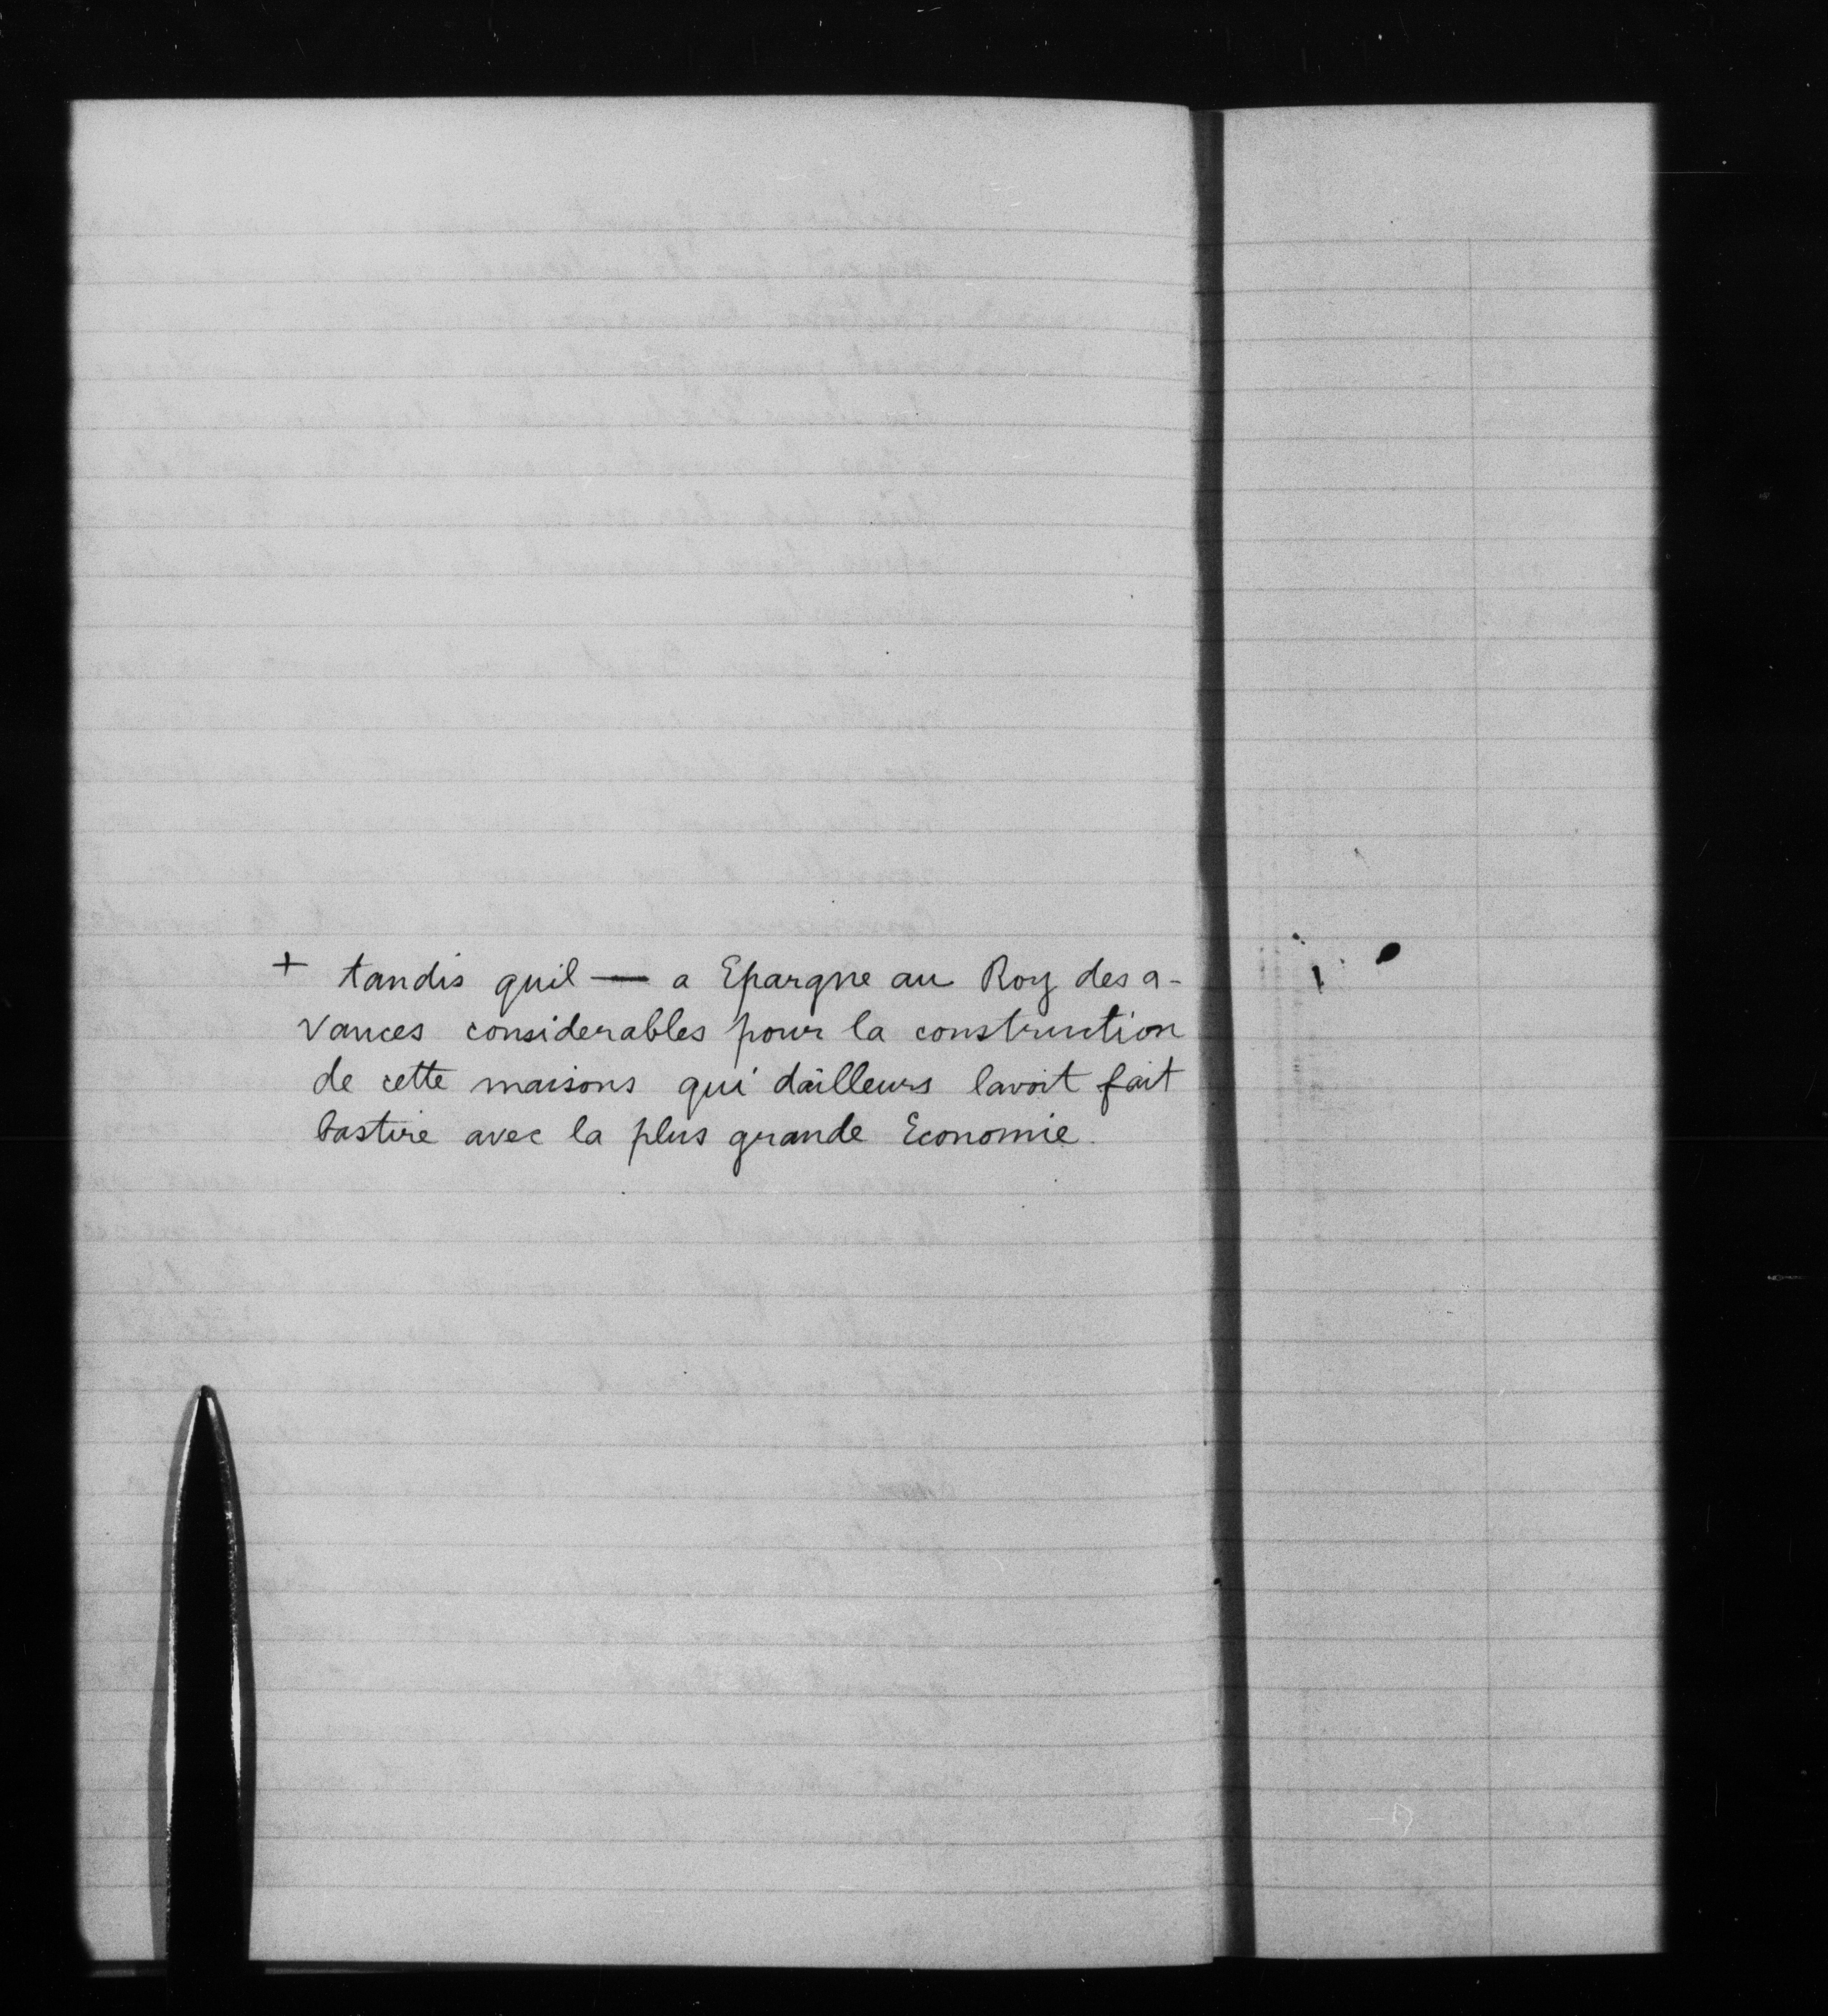 + tandis quil — a Epargne au Roy des a-
vances considerables pour la construction
de cette maisons qui dailleurs lavoit fait
bastire avec la plus grande Economie.